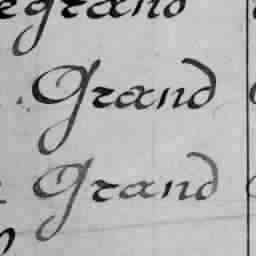 grand
Grand
Grand